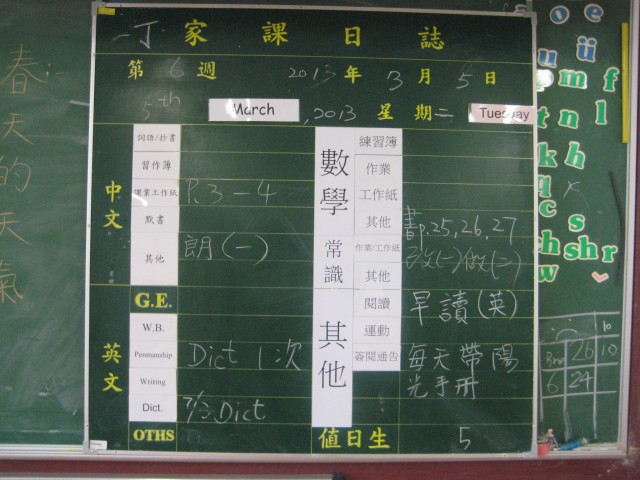 春天的天氣
丁 家課日誌
第 6 週 2013 年 3 月 5 日
5th March, 2013 星期二 Tuesday
中文
詞語/抄書
習作簿
課業工作紙 P.3-4
默書
其他 朗(一)
G.E.
英文
W.B.
Penmanship Dict 1次
Writing
Dict. 7/3 Dict
OTHS
數學
練習簿
作業
工作紙
其他 書p.25,26,27
常識
作業/工作紙 改(一)做(二)
其他
其他
閱讀 早讀(英)
運動
簽閱通告 每天帶陽
光手冊
值日生 5
o e
u ü
p m f
t n l
k h
q
c s
th sh r
w
10
26 10
6 24